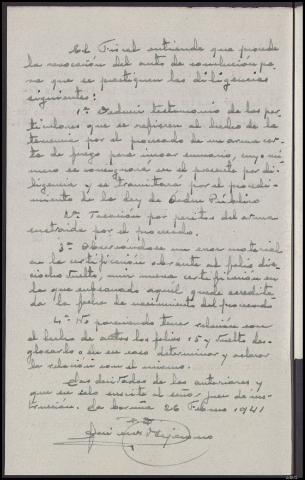 El Fiscal entiende que procede
la revocación del auto de conclusión pa
ra que se practiquen las diligencias
siguientes:
1º Deducir testimonio de los par
ticulares que se refieren al hecho de la
tenencia por el procesado de un arma cor
ta de fuego para incoar sumario, cuyo nú
mero se consignará en el presente por di
ligencia y se tramitará por el procedi
miento de la ley de Orden Público
2º Tasación por peritos del arma
encontrada por el procesado.
3º Observándose un error material
en la certificación obrante al folio die
ciocho vuelto, unir nueva certificación en
la que subsanado aquél quede acredita
da la fecha de nacimiento del procesado
4º No pareciendo tener relación con
el hecho de autos los folios 15 y vuelto des
glosarlos o en su caso determinar y aclarar
la relación con el mismo.
Las derivadas de las anteriores y
que en celo suscite al señor Juez de ins
trucción. La Coruña 26 Febrero 1941